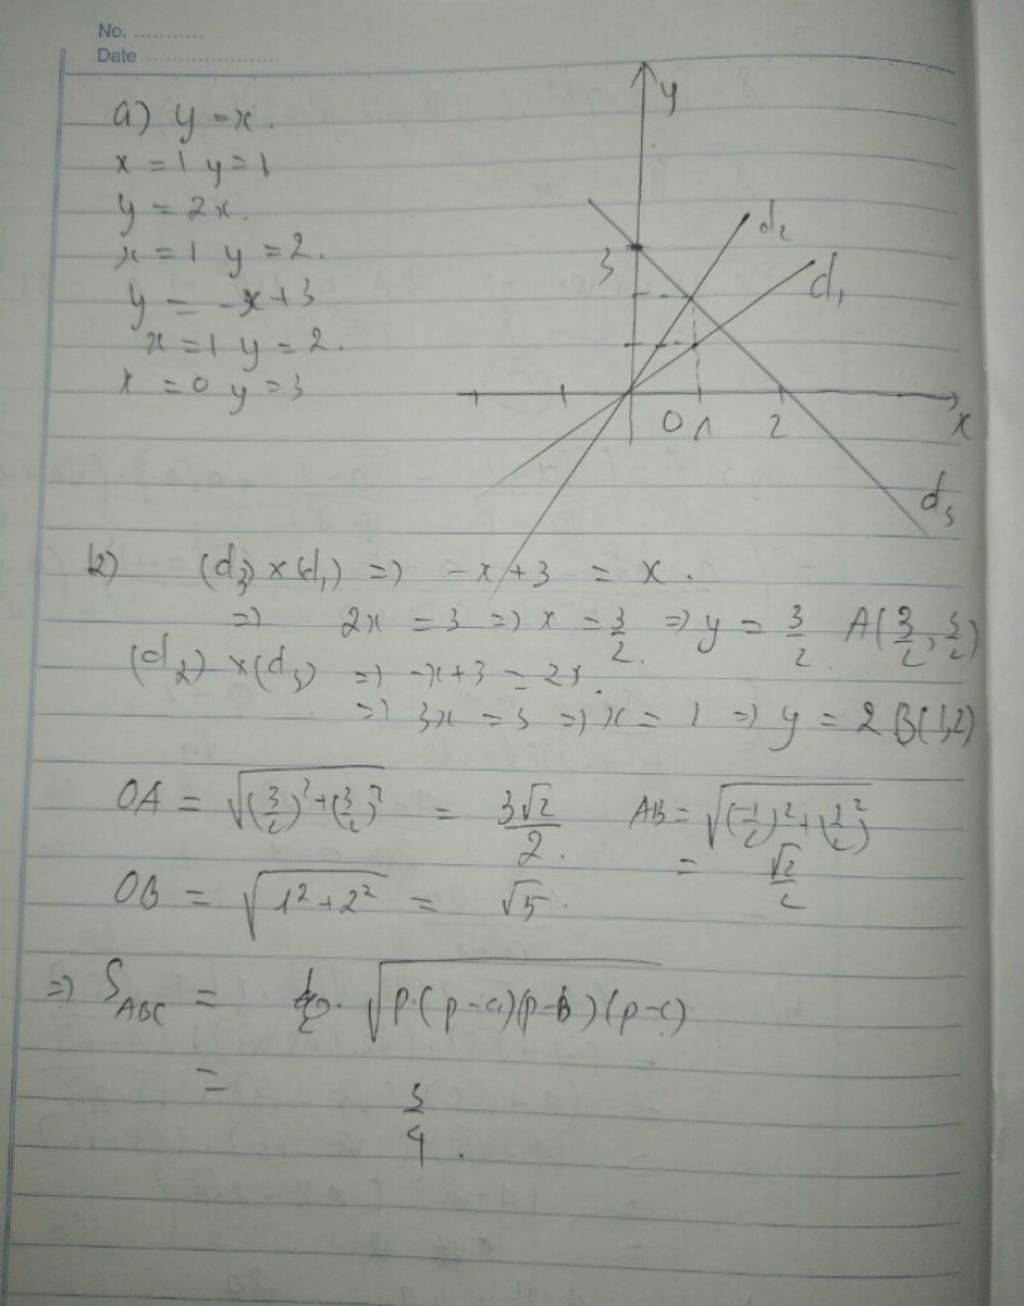 No. ............
Date .......................
a) y = x.
x = 1 y = 1
y = 2x.
x = 1 y = 2.
y = -x + 3
x = 1 y = 2.
x = 0 y = 3
y
d₂
3
d₁
0 1 2
x
d₃
b) (d₃) x (d₁) => -x + 3 = x.
=> 2x = 3 => x = 3/2. => y = 3/2. A(3/2, 3/2)
(d₂) x (d₃) => -x + 3 = 2x.
=> 3x = 3 => x = 1 => y = 2 B(1,2)
OA = √((3/2)² + (3/2)²) = 3√2/2. AB = √((-1/2)² + (1/2)²)
= √2/2
OB = √(1² + 2²) = √5.
=> S_ABC = √(p.(p-a)(p-b)(p-c))
= 3/4.